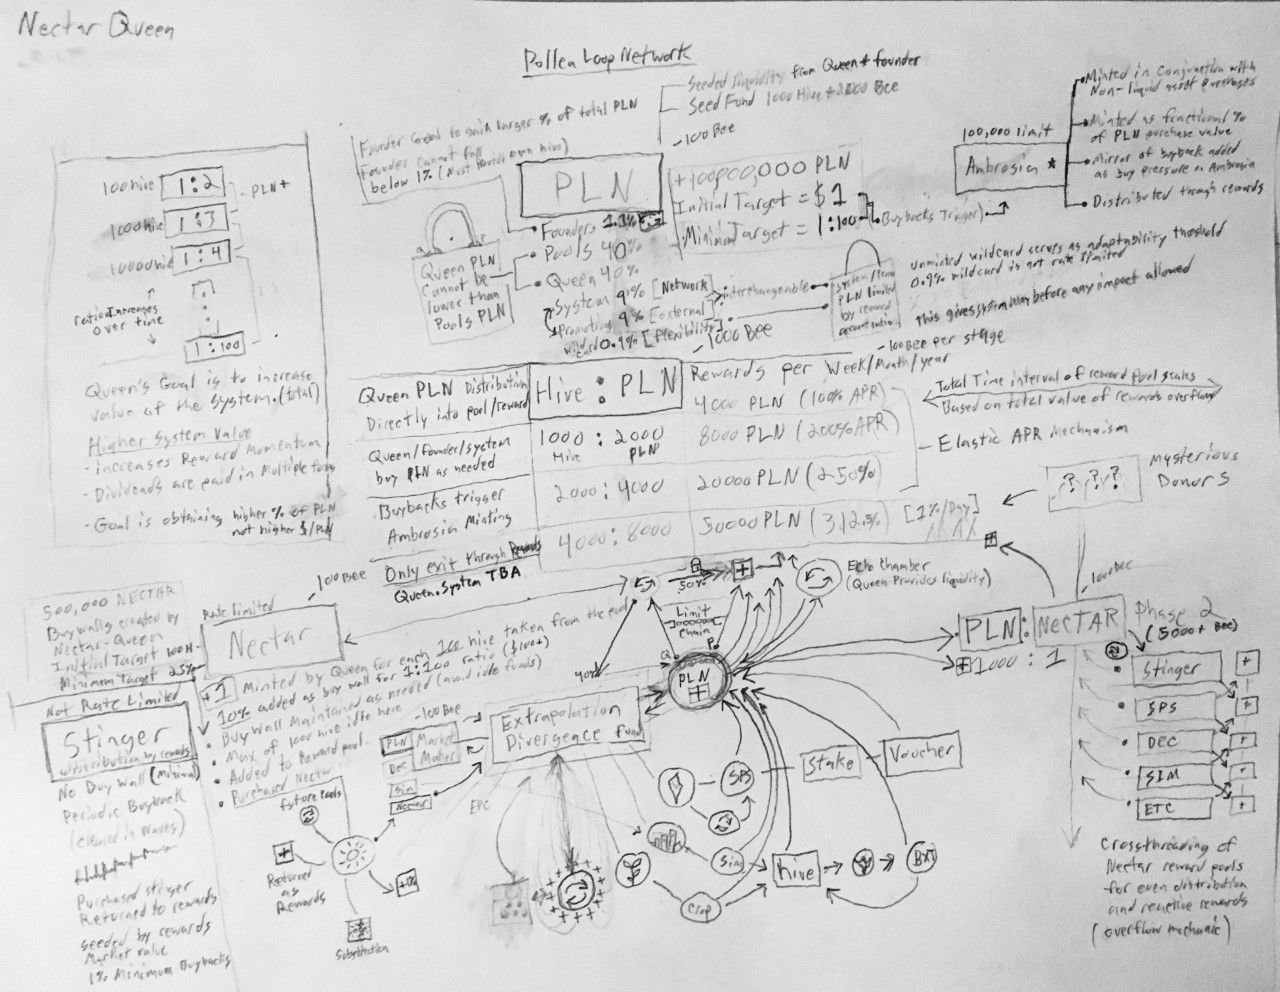 Nectar Queen
Pollen Loop Network
Seeded liquidity from Queen + founder
Seed Fund 1000 Hive + 1000 Bee
-100 Bee
Founder Goal to gain larger % of total PLN
Founder cannot fall
below 1% (Must provide own hive)
PLN
+100,000,000 PLN
Initial Target = $1
Minimum Target = 1:100
Buybacks Trigger
Founders 1.1%
Pools 40%
Queen 40%
System 9% [Network]
Promoting 9% [external]
wild card 0.9% [flexibility]
interchangeable
Queen PLN
Cannot be
lower than
Pools PLN
PLN limited
by reward
100,000 limit
Ambrosia *
Minted in Conjunction with
Non-liquid asset purchases
Minted as fractional %
of PLN purchase value
Mirror of buyback added
as buy pressure on Ambrosia
Distributed through rewards
unminted wildcard serves as adaptability threshold
0.9% wildcard is not rate limited
This gives system play before any impact allowed
100 hive 1:2
PLN+
1000 hive 1:3
10000 hive 1:4
ratio Increases
over time
1:100
Queen's Goal is to increase
value of the system. (total)
Higher System Value
- increases Reward Momentum
- Dividends are paid in Multiple forms
- Goal is obtaining higher % of PLN
not higher $/PLN
-1000 Bee
-100 Bee per stage
Queen PLN Distribution
Directly into pool/reward
Hive : PLN
Rewards per Week/Month/year
4000 PLN (100% APR)
Queen/founder/system
buy PLN as needed
1000 : 2000
Hive PLN
8000 PLN (200% APR)
Buybacks trigger
Ambrosia Minting
2000 : 4000
20000 PLN (250%)
Only exit through Rewards
Queen.System TBA
4000 : 8000
50000 PLN (312.5%) [1%/Day]
MAX
Total Time interval of reward pool scales
Based on total value of rewards overflow
Elastic APR Mechanism
? ? ?
Mysterious
Donors
500,000 NECTAR
Buy walls created by
Nectar-Queen
Initial Target 100H
Minimum Target 25%
-100 Bee
Rate limited
Nectar
+1 Minted by Queen for each 100 hive taken from the pool
10% added as buy wall for 1:100 ratio ($100+)
• Buy wall Maintained as needed (avoid idle funds)
• Max of 1000 hive idle here
• Added to Reward pool
• Purchased Nectar
Not Rate Limited
Stinger
distribution by rewards
No Buy Wall (Minimal)
Periodic Buyback
(cleared in Waves)
Purchased stinger
Returned to rewards
Seeded by rewards
Market value
1% Minimum Buybacks
future pools
+
Returned
as
Rewards
Substitution
-100 Bee
PLN
Dec
Sim
Nectar
Market
Maker
Extrapolation
Divergence fund
EPC
40%
50%
Limit
chain
Q
P
PLN
+
Echo Chamber
(Queen Provides liquidity)
SPS
Stake
Voucher
Sim
Crop
hive
BXT
-100 Bee
PLN : NECTAR
+ 1000 : 1
Phase 2
(5000+ Bee)
Stinger
SPS
DEC
SIM
ETC
Crossthreading of
Nectar reward pools
for even distribution
and reactive rewards
(overflow mechanic)